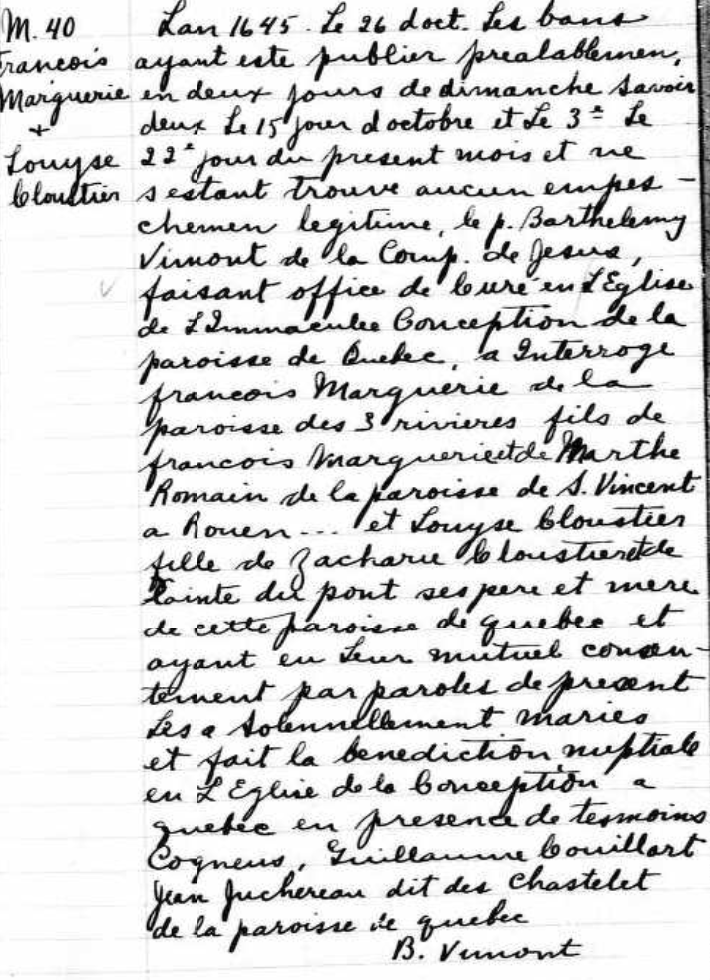 M. 40
francois
Marguerie
+
Louyse
Cloustier
Lan 1645. Le 26 doct. Les bans
ayant este publier prealablemen,
en deux jours de dimanche savoir
deux Le 15 jour doctobre et Le 3e Le
22e jour du present mois et ne
sestant trouve aucun empes-
chemen legitime, le p. Barthelemy
Vimont de la Comp. de Jesus,
faisant office de Cure en LEglise
de LImmaculee Conception de la
paroisse de Quebec, a Interroge
francois Marguerie de la
paroisse des 3 rivieres fils de
francois Marguerie et de Marthe
Romain de la paroisse de S. Vincent
a Rouen... et Louyse Cloustier
fille de Zacharie Cloustier et de
Sainte du pont ses pere et mere
de cette paroisse de quebec et
ayant eu Leur mutuel consen-
tement par paroles de present
Les a Solennellement maries
et fait la benediction nuptiale
en LEglise de la Conception a
quebec en presence de tesmoins
Cogneus, Guillaume Couillart
Jean Juchereau dit des Chastelet
de la paroisse de quebec
B. Vimont